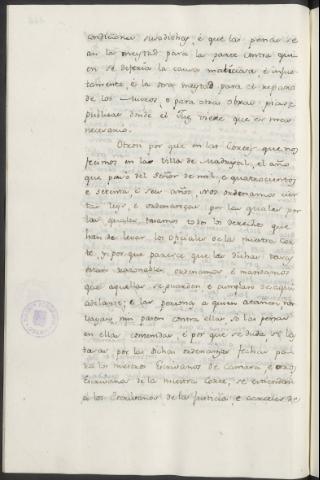 condiciones susodichas, é que las penas se
an la meytad para la parte contra qui
en se defería la causa maliciosa é injus
tamente, é la otra meytad para el reparo
de los Muros, o para otras obras pias é
publicas donde el Juez viere que es mas
necesario.
Otrosi por que en las Cortes que nos
fecimos en la Villa de Madrigal, el año
que pasó del Señor de mil, é quatrocientos
é setenta, é seis años, Nos ordenamos cier
tas leyes, é ordenanzas por las quales por
las quales tasamos todos los derechos que
han de levar los oficiales de la nuestra Cor
te, y por que parecen que las dichas tasas
eran razonables ordenamos é mandamos
que aquellas se guarden é cumplan de aqui
adelante, é las personas á quien atañen, non
vayan, nin pasen contra ellas, so las penas
en ellas contenidas, é por que se duda, si la
tasa por las dichas ordenanzas fechas pa
ra los nuestros Escrivanos de Camara, é otros
Escrivanos de la nuestra Corte, se entienden
á los Escrivanos de la Justicia, é carceles de